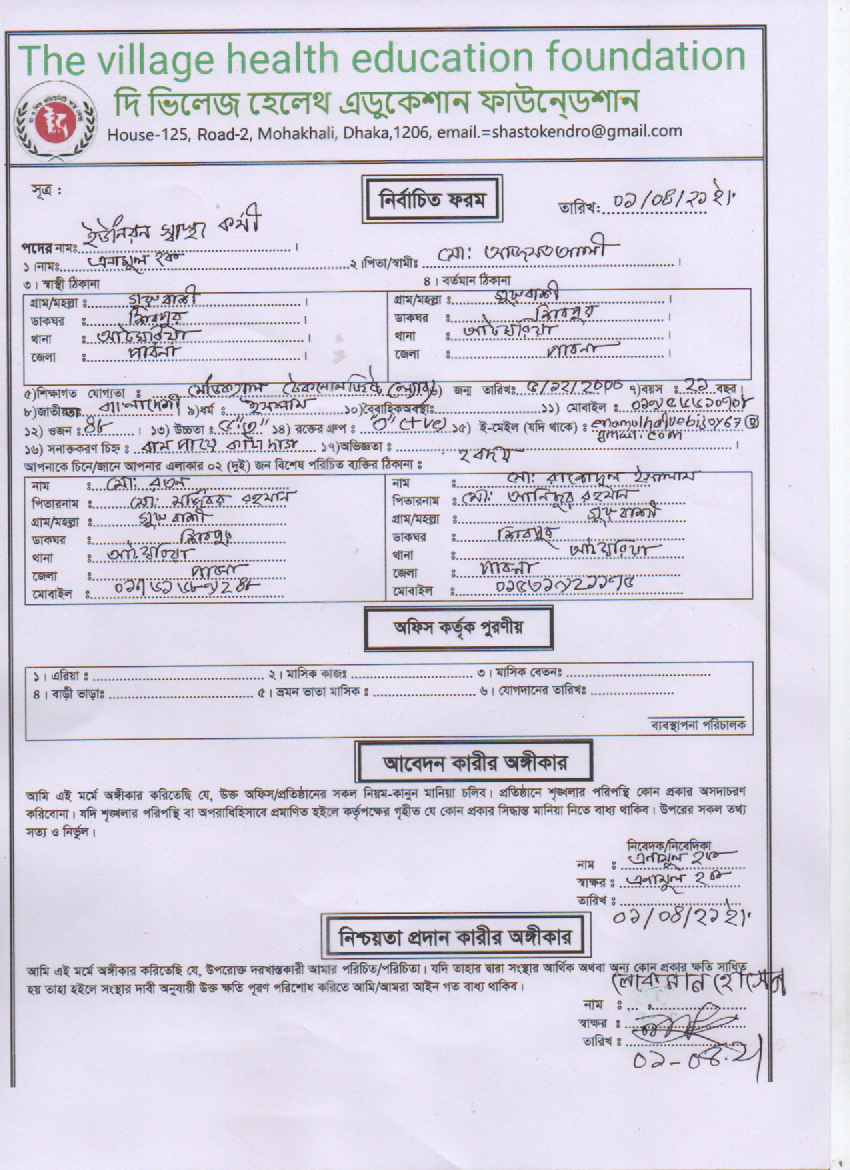 The village health education foundation
দি ভিলেজ হেলেথ এডুকেশান ফাউন্ডেশান
House-125, Road-2, Mohakhali, Dhaka,1206, email.=shastokendro@gmail.com
সূত্র :
নির্বাচিত ফরম
তারিখ: ০১/০৪/২১ ইং
পদের নামঃ ইউনিয়ন স্বাস্থ্য কর্মী
১।নামঃ এনামুল হক ২।পিতা/স্বামীঃ মো:
৩। স্থায়ী ঠিকানা ৪। বর্তমান ঠিকানা
গ্রাম/মহল্লা ঃ গ্রাম/মহল্লা ঃ
ডাকঘর ঃ শিবপুর ডাকঘর ঃ শিবপুর
থানা ঃ আটঘরিয়া থানা ঃ আটঘরিয়া
জেলা ঃ পাবনা জেলা ঃ পাবনা
৫)শিক্ষাগত যোগ্যতা : মেডিক্যাল জন্ম তারিখঃ ৫/১২/2000 ৭)বয়স : ২১ বছর।
বাংলাদেশী ৯)ধর্ম : ইসলাম ১০)বৈবাহিকঅবস্থাঃ ১১) মোবাইল :
১২) ওজন : ৪৮ ১৩) উচ্চতা : ১৪) রক্তের গ্রুপ : "o" (+ve) ১৫) ই-মেইল (যদি থাকে) :
gmail.com
১৬) সনাক্তকরণ চিহ্ন : বাম পায়ে কাটা দাগ ১৭)অভিজ্ঞতা :
আপনাকে চিনে/জানে আপনার এলাকার ০২ (দুই) জন বিশেষ পরিচিত ব্যক্তির ঠিকানা :
নাম : মো: রতন নাম : মো: ইসলাম
পিতারনাম : মো: রহমান পিতারনাম : মো: আনিছুর রহমান
গ্রাম/মহল্লা : গ্রাম/মহল্লা :
ডাকঘর : শিবপুর ডাকঘর : শিবপুর
থানা ঃ আটঘরিয়া থানা : আটঘরিয়া
জেলা ঃ পাবনা জেলা ঃ পাবনা
মোবাইল ঃ মোবাইল ঃ
অফিস কর্তৃক পুরণীয়
১। এরিয়া : ২। মাসিক কাজঃ ৩। মাসিক বেতনঃ
৪। বাড়ী ভাড়াঃ ৫। ভ্রমন ভাতা মাসিক ঃ ৬। যোগদানের তারিখঃ
ব্যবস্থাপনা পরিচালক
আবেদন কারীর অঙ্গীকার
আমি এই মর্মে অঙ্গীকার করিতেছি যে, উক্ত অফিস/প্রতিষ্ঠানের সকল নিয়ম-কানুন মানিয়া চলিব। প্রতিষ্ঠানে শৃঙ্খলার পরিপন্থি কোন প্রকার অসদাচরণ
করিবোনা। যদি শৃঙ্খলার পরিপন্থি বা অপরাধিহিসাবে প্রমাণিত হইলে কর্তৃপক্ষের গৃহীত যে কোন প্রকার সিদ্ধান্ত মানিয়া নিতে বাধ্য থাকিব। উপরের সকল তথ্য
সত্য ও নির্ভুল।
নিবেদক/নিবেদিকা
নাম : এনামুল হক
স্বাক্ষর : এনামুল হক
তারিখ :
০১/০৪/২১ ইং
নিশ্চয়তা প্রদান কারীর অঙ্গীকার
আমি এই মর্মে অঙ্গীকার করিতেছি যে, উপরোক্ত দরখাস্তকারী আমার পরিচিত/পরিচিতা। যদি তাহার দ্বারা সংস্থার আর্থিক অথবা অন্য কোন প্রকার ক্ষতি সাধিত
হয় তাহা হইলে সংস্থার দাবী অনুযায়ী উক্ত ক্ষতি পূরণ পরিশোধ করিতে আমি/আমরা আইন গত বাধ্য থাকিব।
লোকমান হোসেন
নাম :
স্বাক্ষর :
তারিখ :
০১-০৪-২১